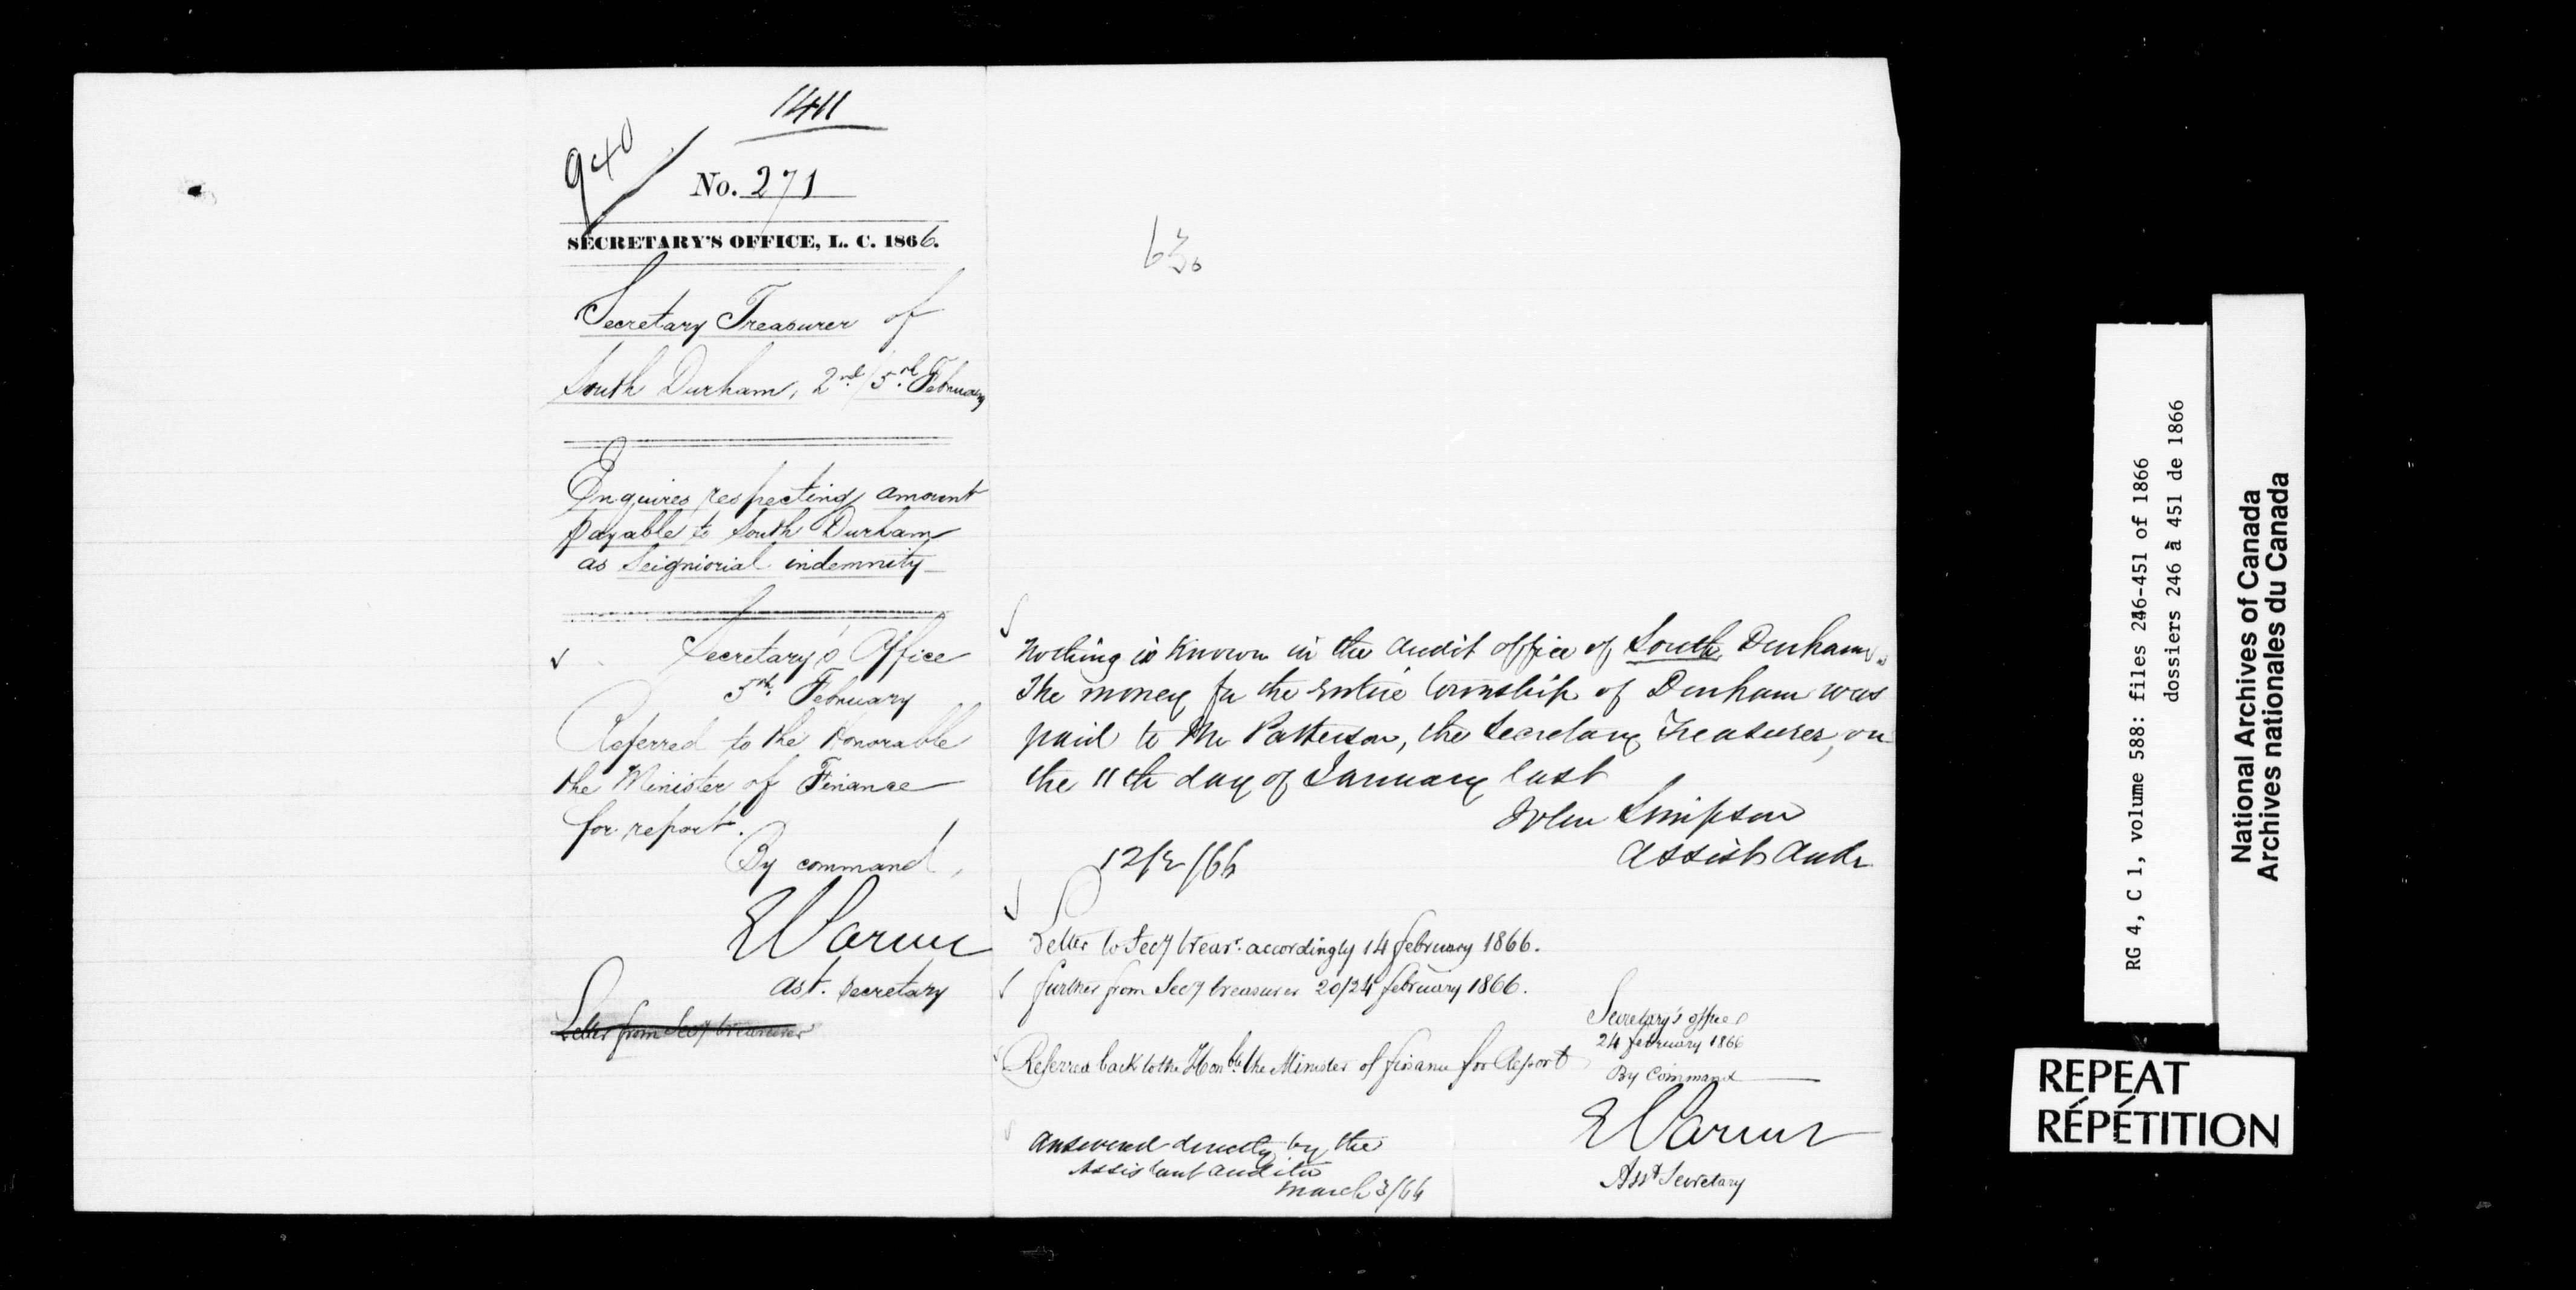 1411
940
No. 271
SECRETARY'S OFFICE, L. C. 1866.
Secretary Treasurer of
South Durham, 2nd/5th February
Enquires respecting amount
payable to South Durham
as Seigniorial indemnity
Secretary's Office
5th February
Referred to the Honorable
the Minister of Finance
for report.
By command,
Ast. Secretary
Letter from Secy treasurer
63
Nothing is Known in the Audit office of South Durham.
The money for the entire township of Durham was
paid to Mr Patterson, the Secretary Treasurer, on
the 11th day of January last
John Simpson
Assist Audr
12/2/66
Letter to Secy treasr. accordingly 14 february 1866.
further from Secy treasurer 20/24 february 1866.
Secretary's office
24 february 1866
Referred back to the Honble the Minister of finance for Report
By Command
Answered directly by the
Assistant Auditor
March 3/66
Asst Secretary
RG 4, C 1, volume 588: files 246-451 of 1866
dossiers 246 à 451 de 1866
National Archives of Canada
Archives nationales du Canada
REPEAT
RÉPÉTITION